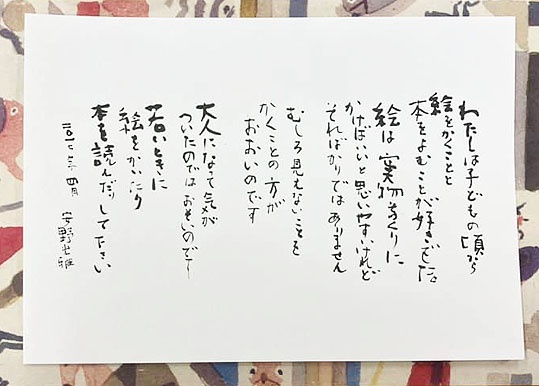 わたしは子どもの頃から
絵をかくことと
本をよむことが好きでした
絵は実物そっくりに
かけばいいと思いやすいけれど
そればかりではありません
むしろ見えないことを
かくことの方が
おおいのです
大人になって気が
ついたのではおそいのです
若いときに
絵をかいたり
本を読んだりして下さい
四月 安野光雅